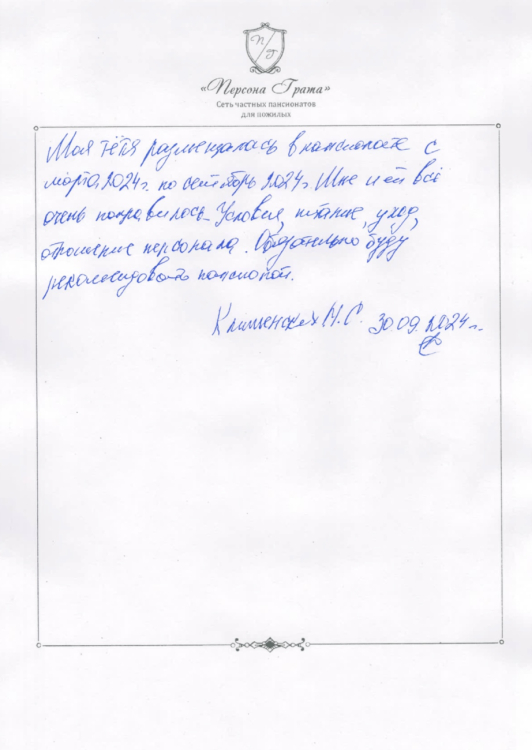 П/Г
«Персона Грата»
Сеть частных пансионатов
для пожилых
Моя тётя размещалась в пансионате с
марта 2024г. по сентябрь 2024г. Мне и ей всё
очень понравилось. Условия, питание, уход,
отношение персонала. Обязательно буду
рекомендовать пансионат.
Н.С. 30.09.2024г.